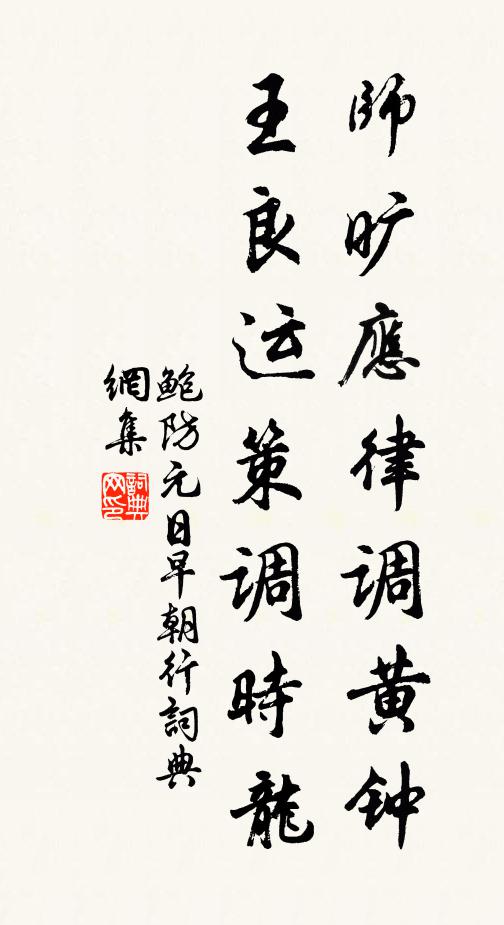 師旷應律调黄钟
王良运策调時龍
鲍防元日早朝行詞典
網集
詞典网印